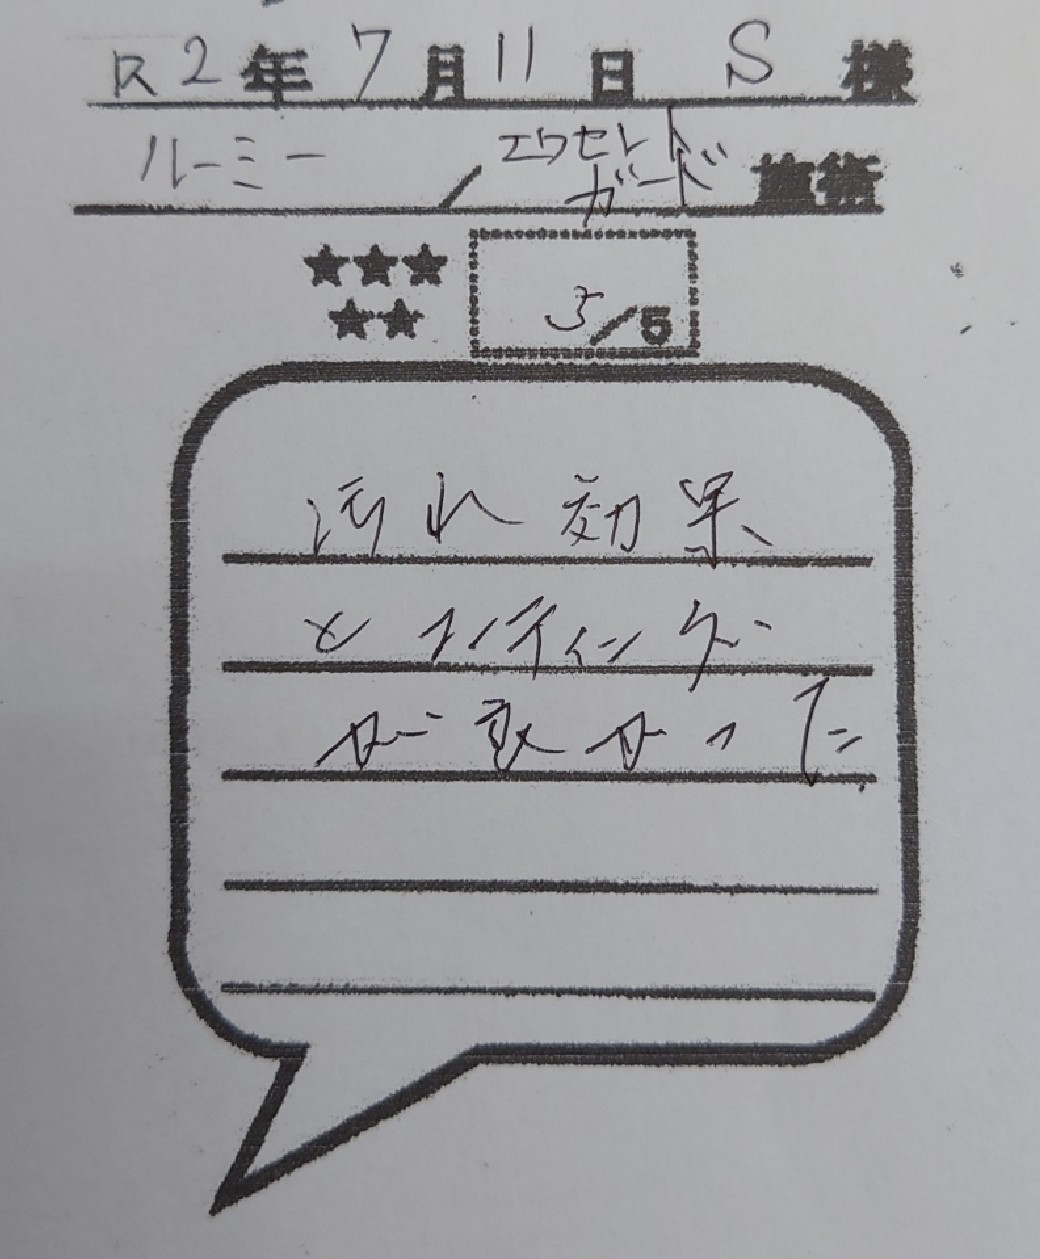 R2年 7月 11日 S 様
ルーミー / エクセレントガード 施術
★★★
★★
5/5
汚れ効果
とコーティング
が良かった